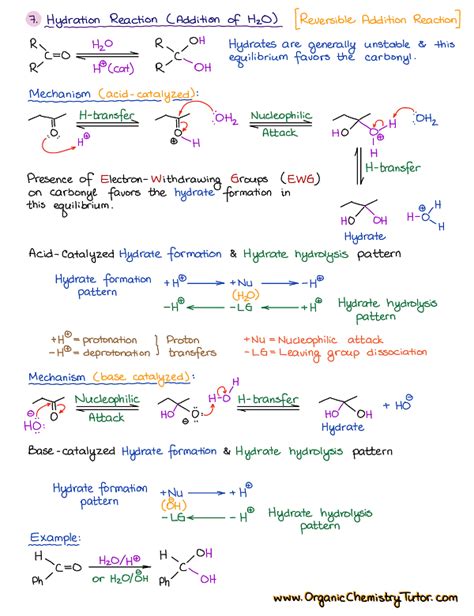 7. Hydration Reaction (Addition of H₂O) [Reversible Addition Reaction]
R R C=O H₂O H⊕(cat) R R C OH OH
Hydrates are generally unstable & this
equilibrium favors the carbonyl.
Mechanism (acid-catalyzed):
O H⊕ H-transfer O⊕ H OH₂ Nucleophilic Attack HO O⊕ H H OH₂
H-transfer
Presence of Electron-Withdrawing Groups (EWG)
on carbonyl favors the hydrate formation in
this equilibrium.
HO OH H O⊕ H H
Hydrate
Acid-Catalyzed Hydrate formation & Hydrate hydrolysis pattern
Hydrate formation pattern +H⊕ → +Nu (H₂O) → -H⊕
-H⊕ ← -LG ← +H⊕ Hydrate hydrolysis pattern
+H⊕ = protonation
-H⊕ = deprotonation
Proton transfers
+Nu = Nucleophilic attack
-LG = Leaving group dissociation
Mechanism (base catalyzed):
O HO⊖ Nucleophilic Attack HO O⊖ H-OH H-transfer HO OH + HO⊖
Hydrate
Base-catalyzed Hydrate formation & Hydrate hydrolysis pattern
Hydrate formation pattern +Nu (OH⊖) → +H⊕
-LG ← -H⊕ Hydrate hydrolysis pattern
Example:
H Ph C=O H₂O/H⊕ or H₂O/OH⊖ H Ph C OH OH
www.OrganicChemistryTutor.com